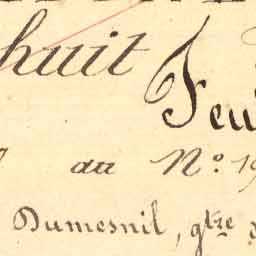 huit
Feu
au N.º 19
Dumesnil, gtre